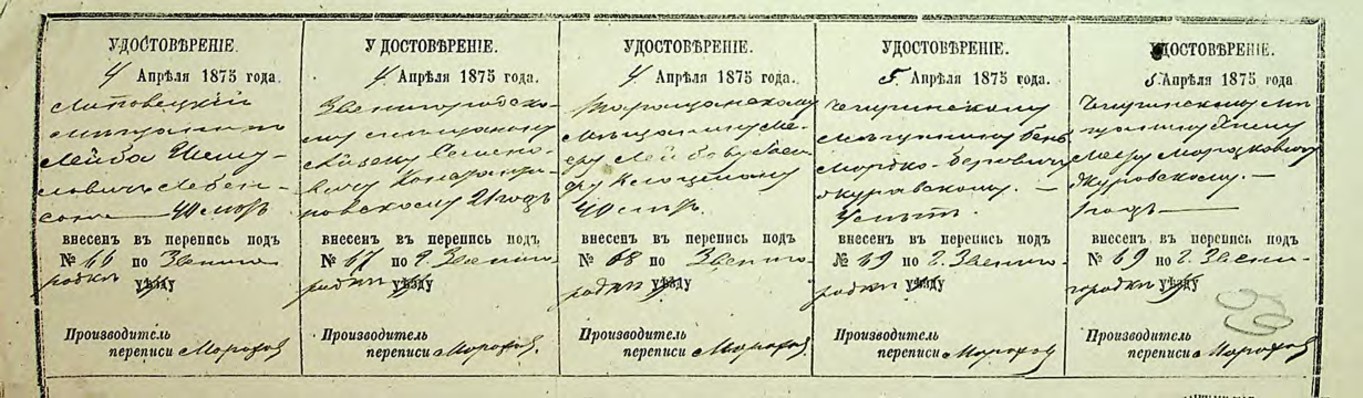 УДОСТОВѢРЕНІЕ.
4 Апрѣля 1875 года.
Липовецкій
мѣщанинъ
Лейба Шму-
левичъ Лебен-
сонъ — 40 лѣтъ
внесенъ въ перепись подъ
№ 66 по Звениго-
родкѣ уѣзду
Производитель
переписи Морозов
УДОСТОВѢРЕНІЕ.
4 Апрѣля 1875 года.
Звенигородско-
му мѣщанину
21 годъ
внесенъ въ перепись подъ
№ 67 по г. Звениго-
родкѣ уѣзду
Производитель
переписи Морозов.
УДОСТОВѢРЕНІЕ.
4 Апрѣля 1875 года.
Таращанскому
мѣщанину Ме-
еру Лейбову
40 лѣтъ.
внесенъ въ перепись подъ
№ 68 по Звениго-
родкѣ уѣзду
Производитель
переписи Морозов
УДОСТОВѢРЕНІЕ.
5 Апрѣля 1875 года.
Чигиринскому
мѣщанину Бень
Мордко-Беровичу
Журавскому. —
внесенъ въ перепись подъ
№ 69 по г. Звениго-
родкѣ уѣзду
Производитель
переписи Морозов
УДОСТОВѢРЕНІЕ.
5 Апрѣля 1875 года
Чигиринскому мѣ-
щанину
Мееру Мордковичу
Журовскому. —
1 годъ —
внесенъ въ перепись подъ
№ 69 по г. Звени-
городкѣ уѣзду
Производитель
переписи Морозов